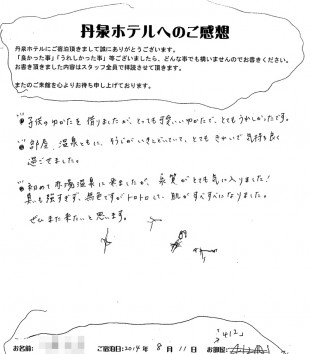 丹泉ホテルへのご感想
丹泉ホテルにご宿泊頂きまして誠にありがとうございます。
「良かった事」「うれしかった事」等ございましたら、どんな事でも構いませんのでお書きください。
お書き頂きました内容はスタッフ全員で拝読させて頂きます。
またのご来館を心よりお待ち申し上げております。
子供のゆかたを借りましたが、とても可愛いゆかたで、とてもうれしかったです。
お部屋、温泉ともに、そうじがいきとどいていて、とてもきれいで気持ち良く
過ごせました。
初めて赤湯温泉に来ましたが、泉質がとても気に入りました!
臭いも強すぎず、無色ですがトロトロして、肌がすべすべになりました。
ぜひまた来たいと思います。
「412」
お名前: ご宿泊日: 2014年 8月 11日 お部屋: